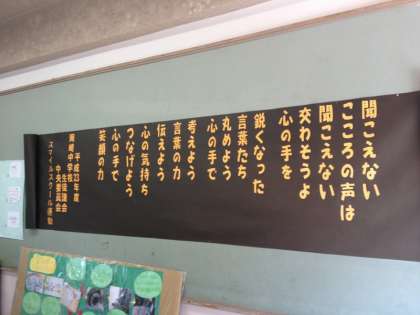 聞こえない
こころの声は
聞こえない
交わそうよ
心の手を
鋭くなった
言葉たち
丸めよう
心の手で
考えよう
言葉の力
伝えよう
心の気持ち
つなげよう
心の手で
笑顔の力
平成23年度
中学校
生徒議会
中央委員会
スマイルスクール運動